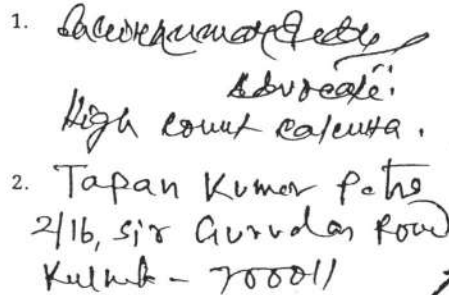 1.
Advocate.
High Court Calcutta.
2. Tapan Kumar Patra
2/16, Sir Gurudas Road
Kolkata - 700011